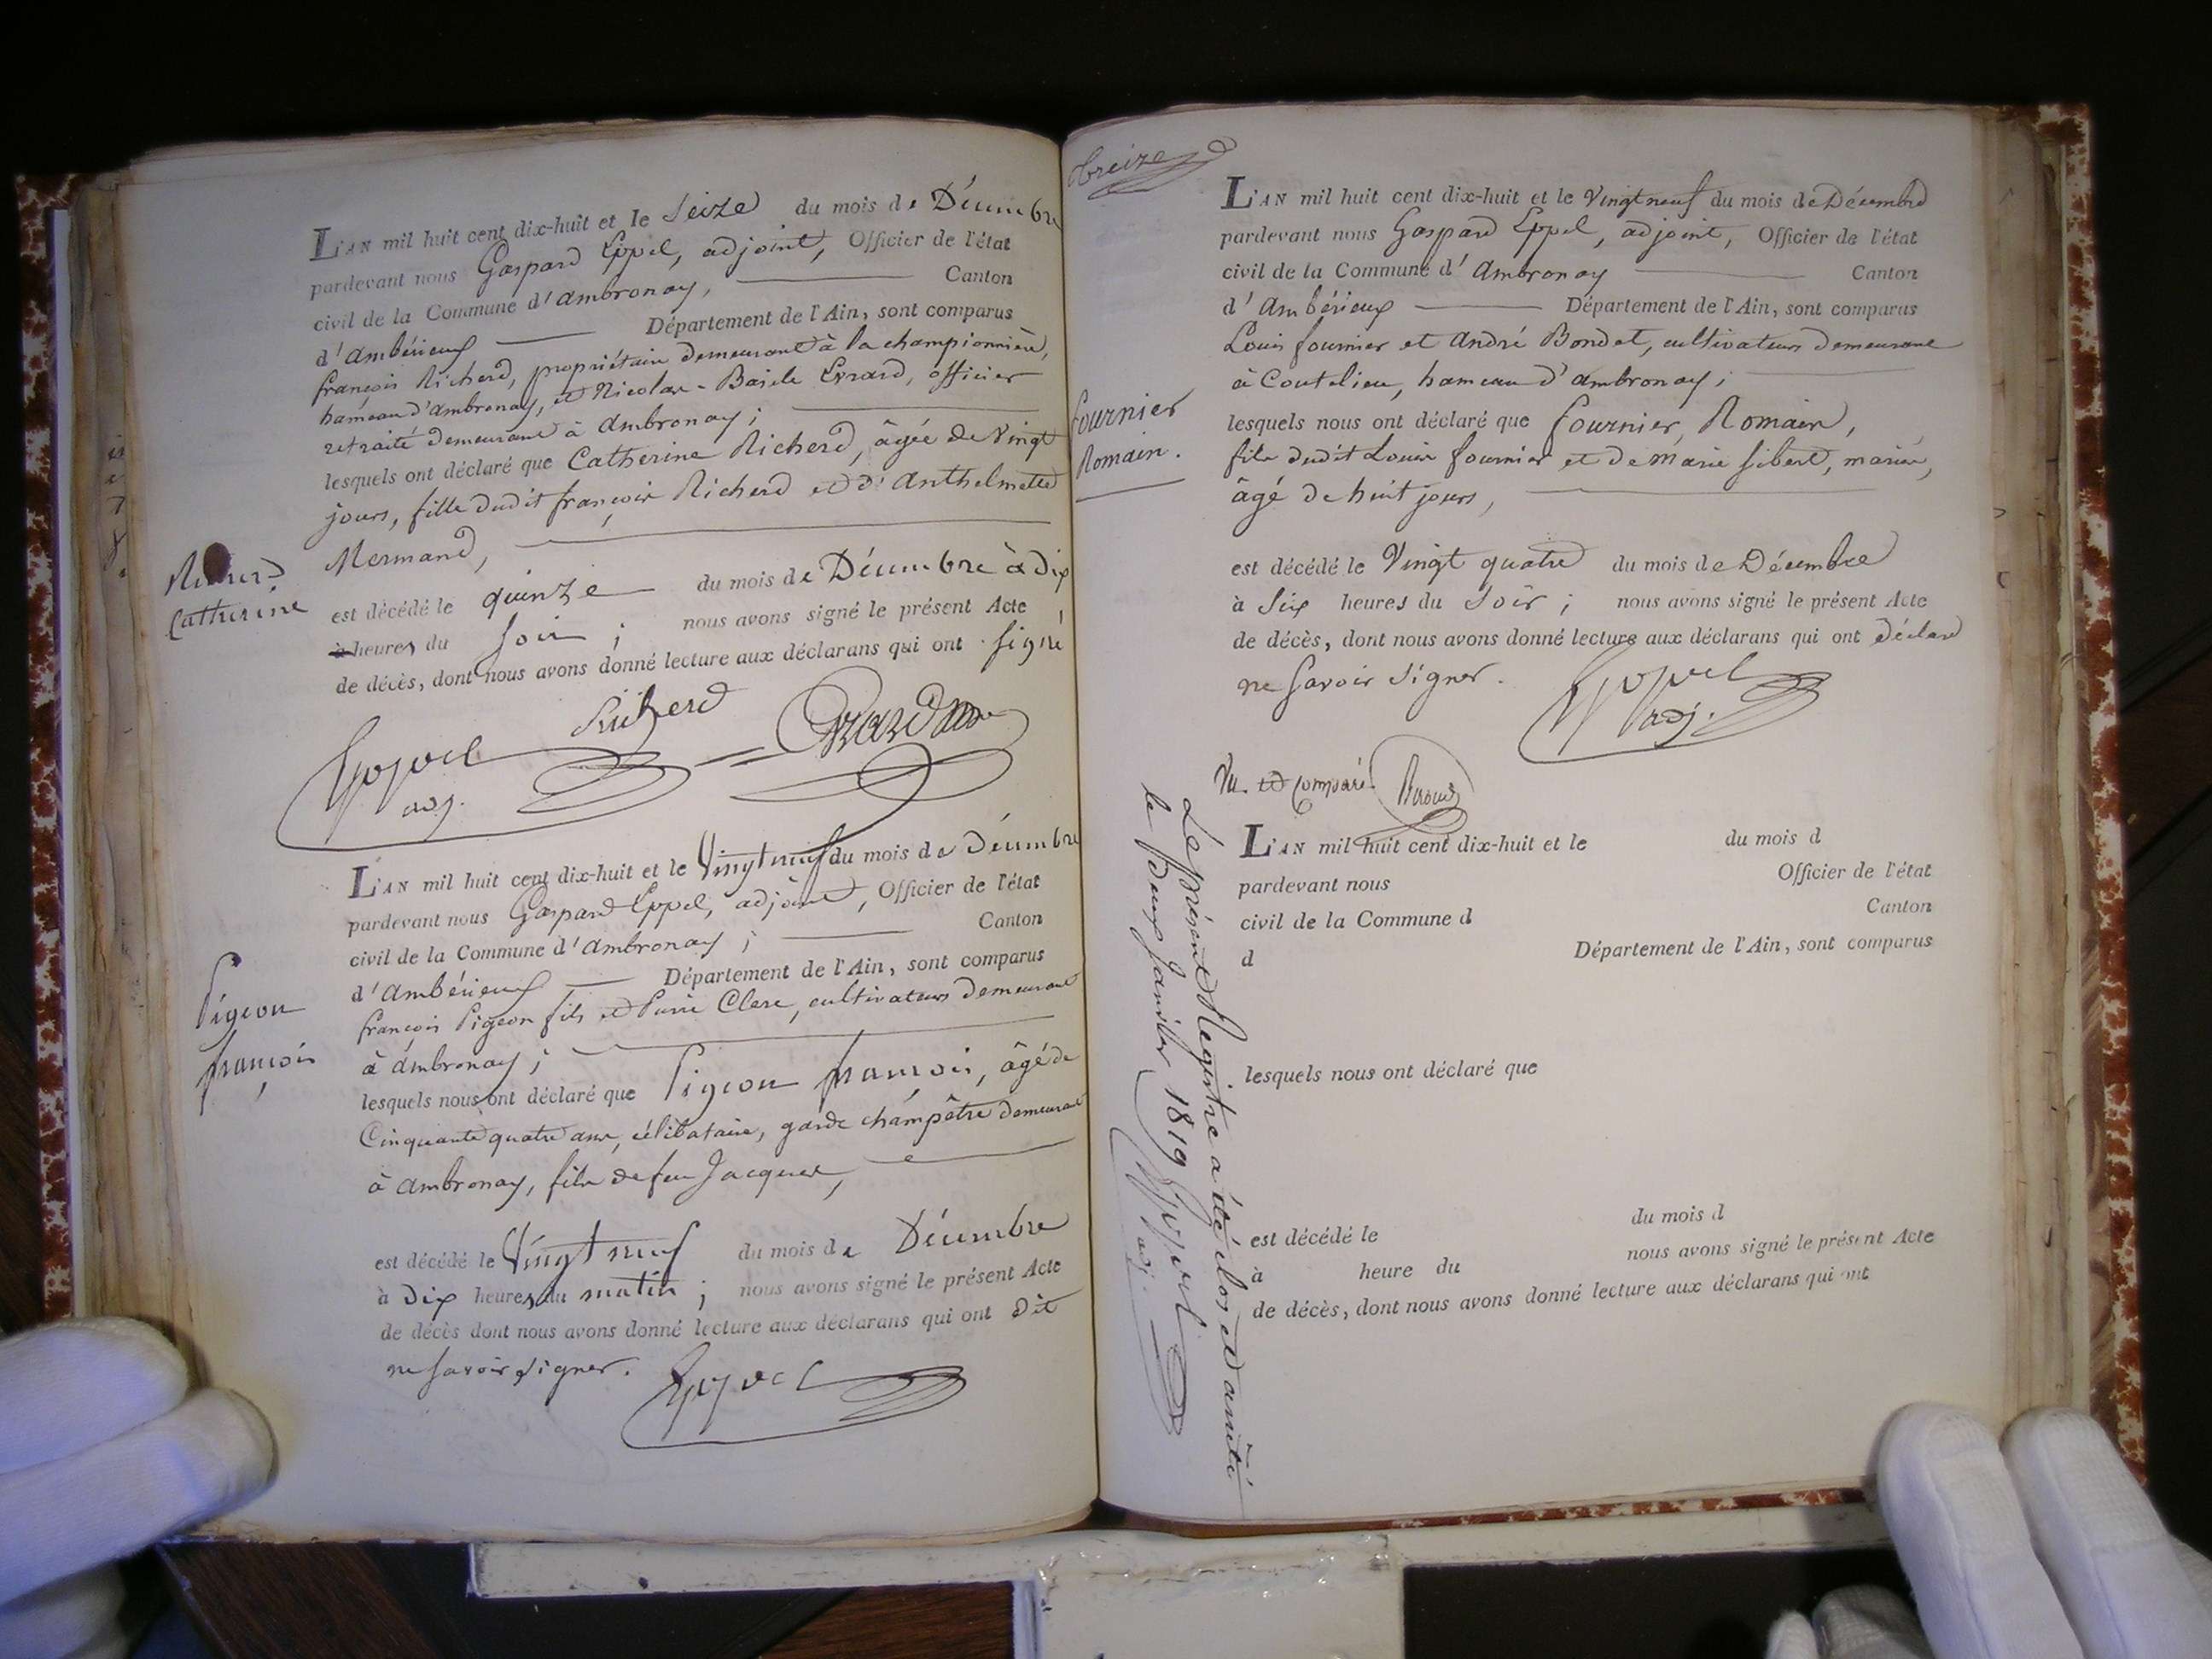 L'AN mil huit cent dix-huit et le Seize du mois de Décembre
pardevant nous Gaspard Eppel, adjoint, Officier de l'état
civil de la Commune d'ambronay, Canton
d'ambérieux Département de l'Ain, sont comparus
françois Richerd, propriétaire demeurant à la championnière,
hameau d'ambronay, et Nicolas-Basile Evrard, officier
retraité demeurant à ambronay;
lesquels ont déclaré que Catherine Richerd, âgée de vingt
jours, fille dudit françois Richerd et d'Anthelmette
Mermand,
Richerd
Catherine
est décédé le quinze du mois de Décembre à dix
à heures du soir; nous avons signé le présent Acte
de décès, dont nous avons donné lecture aux déclarans qui ont signé,
Richerd
Evrard
Eppel
adj.
L'AN mil huit cent dix-huit et le Vingt neuf du mois de Décembre
pardevant nous Gaspard Eppel, adjoint, Officier de l'état
civil de la Commune d'ambronay; Canton
d'ambérieux Département de l'Ain, sont comparus
françois Pigeon fils et Pierre Clerc, cultivateurs demeurant
à ambronay;
Pigeon
françois
lesquels nous ont déclaré que Pigeon françois, âgé de
Cinquante quatre ans, célibataire, garde champêtre demeurant
à ambronay, fils de feu Jacques,
est décédé le Vingt neuf du mois de Décembre
à Dix heures du matin; nous avons signé le présent Acte
de décès dont nous avons donné lecture aux déclarans qui ont dit
ne savoir signer.
Eppel
treize
L'AN mil huit cent dix-huit et le Vingt neuf du mois de Décembre
pardevant nous Gaspard Eppel, adjoint, Officier de l'état
civil de la Commune d'ambronay Canton
d'ambérieux Département de l'Ain, sont comparus
Louis fournier et andré Bondet, cultivateurs demeurant
à Coutelieu, hameau d'ambronay;
fournier
Romain.
lesquels nous ont déclaré que fournier, Romain,
fils dudit Louis fournier et de marie sibert, mariés,
âgé de huit jours,
est décédé le Vingt quatre du mois de Décembre
à Six heures du Soir; nous avons signé le présent Acte
de décès, dont nous avons donné lecture aux déclarans qui ont déclaré
ne savoir signer.
Eppel
adj.
Vu et comparé
Le présent Registre a été clos et arrêté
le deux Janvier 1819
Eppel
adj.
L'AN mil huit cent dix-huit et le du mois d
pardevant nous Officier de l'état
civil de la Commune d Canton
d Département de l'Ain, sont comparus
lesquels nous ont déclaré que
est décédé le du mois d
à heure du nous avons signé le présent Acte
de décès, dont nous avons donné lecture aux déclarans qui ont